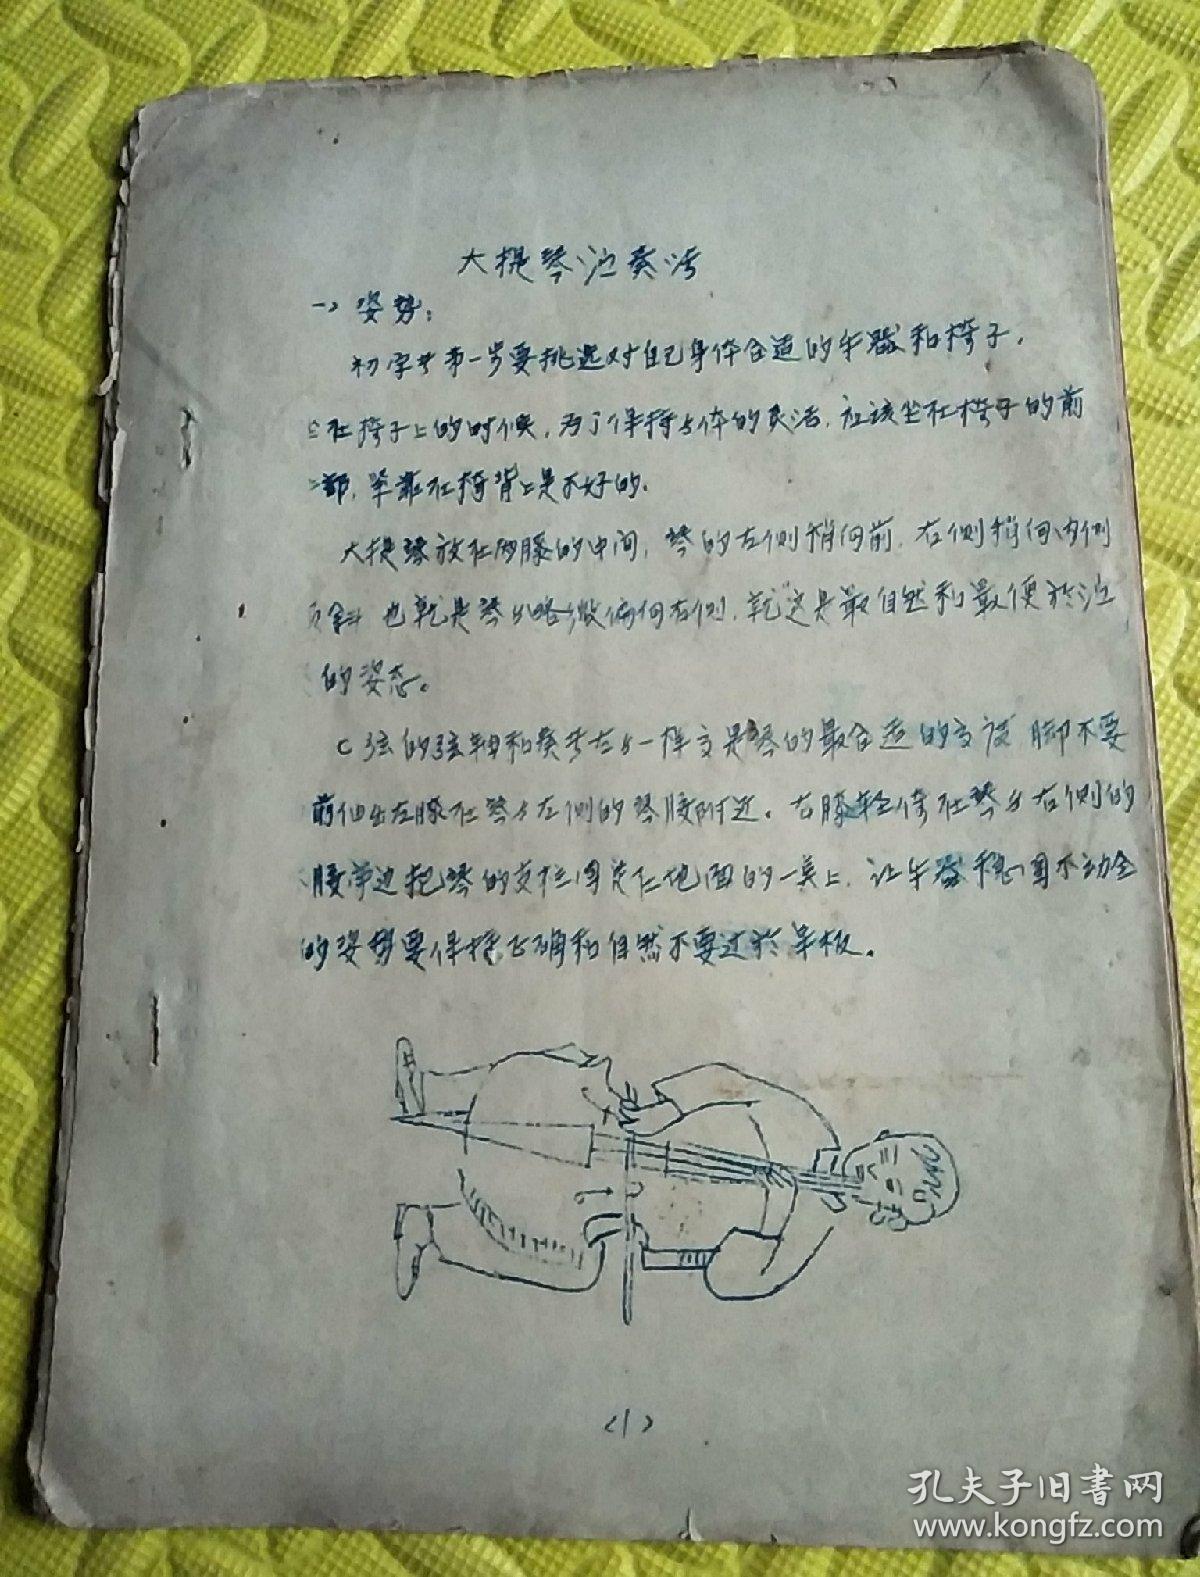 大提琴演奏法
一、姿势：
初学者第一步要挑选对自己身体合适的乐器和椅子，
在椅子上的时候，为了保持身体的灵活，应该坐在椅子的前
部，紧靠在椅背上是不好的。
大提琴放在两膝的中间，琴的左侧稍向前，右侧稍向内侧
倾斜 也就是琴身略微偏向右侧，就这是最自然和最便於演
的姿态。
C弦的弦轴和 左 一样 是琴的最合适的 脚不要
前伸出左膝在琴身左侧的琴腰附近。右膝轻倚在琴身右侧的
腰 边把琴的支柱固定在地面的一点上，让乐器稳固不动全
的姿势要保持正确和自然不要过於呆板。
(1)
孔夫子旧书网
www.kongfz.com